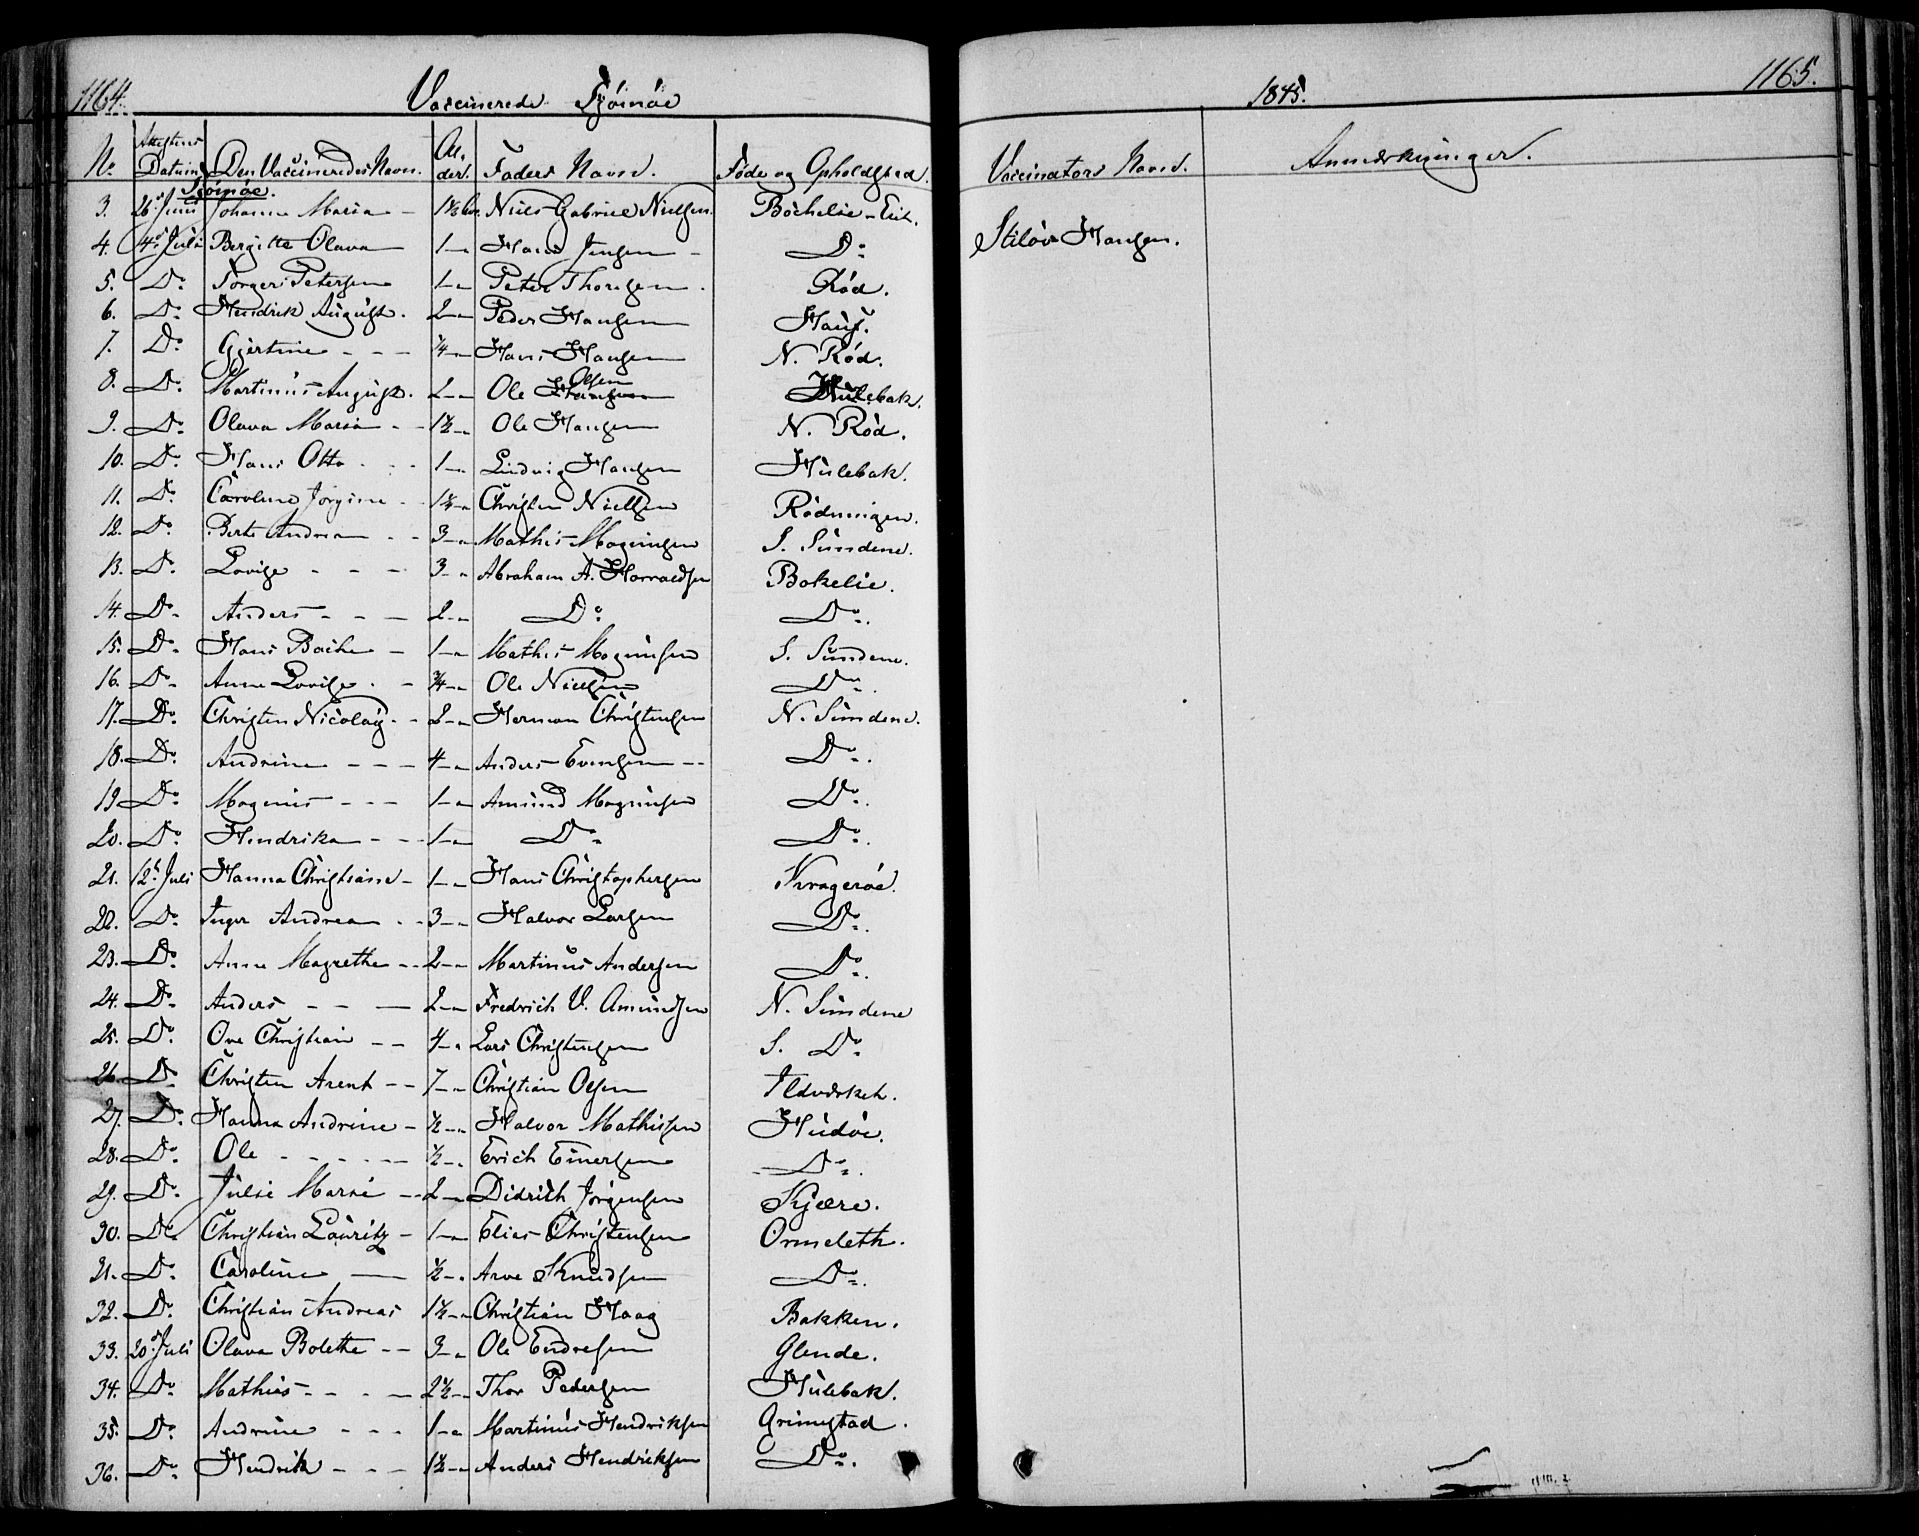 1164.
Vaccinerede Tjömöe
No. Attestens Datum Den Vaccineredes Navn. Al- der. Faders Navn. Föde og Opholdsted.
Tjömöe.
3. 26 Juni Johanne Maria - 1½ Niels Gabriel Nielsen. Böchelie -
4. 4 Juli Bergitte Olava 1 - " Hans Jensen - Do
5. Do Torger Petersen 1 - " Peter Thorsen. Röd.
6. Do Hendrik August. 2 - " Peder Hansen Haug.
7. Do Gjertine - - - ¼ - " Hans Hansen N. Röd.
8. Do Martinus August. 2 - " Ole Olsen Hansen Hulebak.
9. Do Olava Maria - - 1½ - " Ole Hansen N. Röd.
10. Do Hans Otto - - - 1 - " Ludvig Hansen Hulebak.
11. Do Caroline Jörgine - 1½ - " Christen Nielsen Rödningen.
12. Do Berte Andrea - - 3 - " Mathis Magnusen S. Sundene.
13. Do Lovise - - - 3 - " Abraham A. Horraldsen Bokelie.
14. Do Anders - - - 2 - " Do Do.
15. Do Hans Bache - 1 - " Mathis Magnusen S. Sundene.
16. Do Anne Lovise. - ¾ - " Ole Nielsen Do.
17. Do Christen Nicolay - - 2 - " Herman Christensen N. Sundene.
18. Do Andrine - - - 4 - " Anders Evensen - - Do.
19 Do Magnus - - - 1 - " Amund Magnusen Do.
20. Do Hendrika - - - 1 - " Do Do.
21. 12 Juli Hanna Christiane - 1 - " Hans Christophersen Krageröe.
22. Do Inger Andrea - - 3 - " Halvor Larsen Do.
23. Do Anne Magrethe - - 2 - " Martinus Andersen Do.
24. Do Anders - - - 2 - " Fredrich V. Amundsen N. Sundene
25. Do Ove Christian - - 4 - " Lars Christensen S. Do
26 Do Christen Arent - - 7 - " Christian Olsen Ildværket.
27. Do Hanna Andrine - ½ - " Halvor Mathisen Hudöe.
28. Do Ole - - - - - ½ - " Erich Einersen Do.
29. Do Julie Marie - - 2 - " Didrich Jörgensen Kjære.
30. Do Christian Lauritz - 1 - " Elias Christensen Ormeleth.
31. Do Caroline - ½ - " Arve Knudsen Do.
32. Do Christian Andreas 1½ - " Christian Haag Bakken.
33. 20 Juli Olava Bolethe - - 3 - " Ole Endresen Glende.
34. Do Mathias - - - - 2½ - " Thor Pedersen Hulebak.
35. Do Andrine - - - 1 - " Martinus Hendriksen Grimstad.
36. Do Hendrik - - - 1½ - " Anders Hendriksen Do.
1845.
1165.
Vaccinators Navn. Anmærkninger.
Hansen.